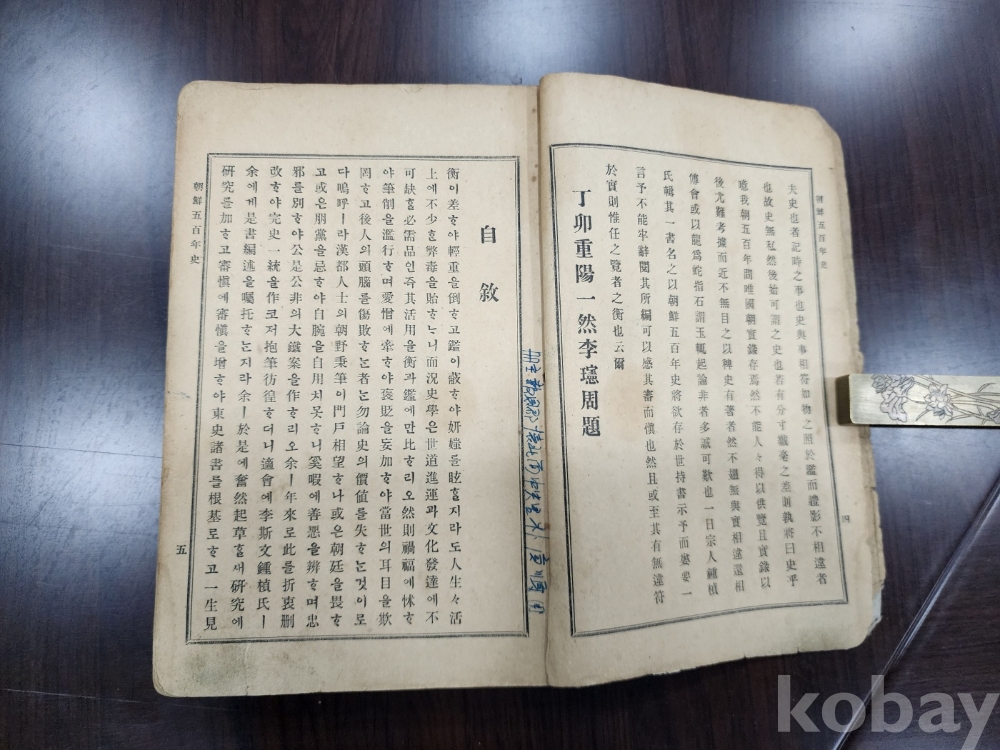 朝鮮五百年史
夫史也者記時之事也史與事相符如物之照於鑑而禮影不相違者
也故史無私然後始可謂之史也若有分寸毫之差則孰將曰史乎
我朝五百年謂唯國朝實錄存焉然不能人々得以供覽且實錄以
後尤難考據而近不無目之以稗史有著者然不過無與實相遠還相
傅會或以龍爲蛇指石謂玉輒起論非者多誠可歎也一日宗人鍾楨
氏輯其一書名之以朝鮮五百年史將欲存於世持書示予而要一
言予不能牢辭閱其所編可以感其審而愼也然且或至其有無違符
於實則惟任之覽者之衡也云爾
丁卯重陽一然李周題
四
自敘
衡이差하야輕重을倒하고鑑이蔽하야妍媸를眩할지라도人生生活
上에不少한弊毒을貽하나니而況史學은世道進運과文化發達에不
可缺할必需品인즉其活用을衡과鑑에만比하리오然則禍福에怵하
야筆削을濫行하며愛憎에牽하야褒貶을妄加하야當世의耳目을欺
罔하고後人의頭腦를傷敗하는者는勿論史의價値를失하는것이로
다嗚呼ㅣ라漢都人士의朝野秉筆이門戶相望하나或은朝廷을畏하
고或은朋黨을忌하야自腕을自用치못하니奚暇에善惡을辨하며忠
邪를別하야公是公非의大鐵案을作하리오余ㅣ年來로此를折衷刪
改하야完史一統을作코저抱筆彷徨하더니適會에李斯文鍾楨氏ㅣ
余에게是書編述을囑托하는지라余ㅣ於是에奮然起草할새研究에
研究를加하고審愼에審愼을增하야東史諸書를根基로하고一生見
朝鮮五百年史
五
kobay